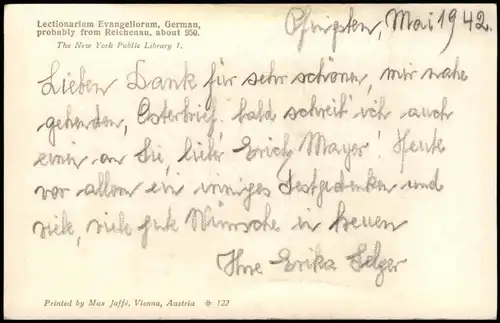 Lectionarium Evangeliorum, German,
probably from Reichenau, about 950.
The New York Public Library 1.
Pfingsten, Mai 1942.
Lieben Dank für sehr schönen, mir nahe
gehenden, Osterbrief. bald schreib' ich auch
einen an Sie, lieber Erich Mayer! Heute
vor allem ein inniges Festgedenken und
viele, viele gute Wünsche in treuen
Ihre Erika
Printed by Max Jaffé, Vienna, Austria ✻ 122